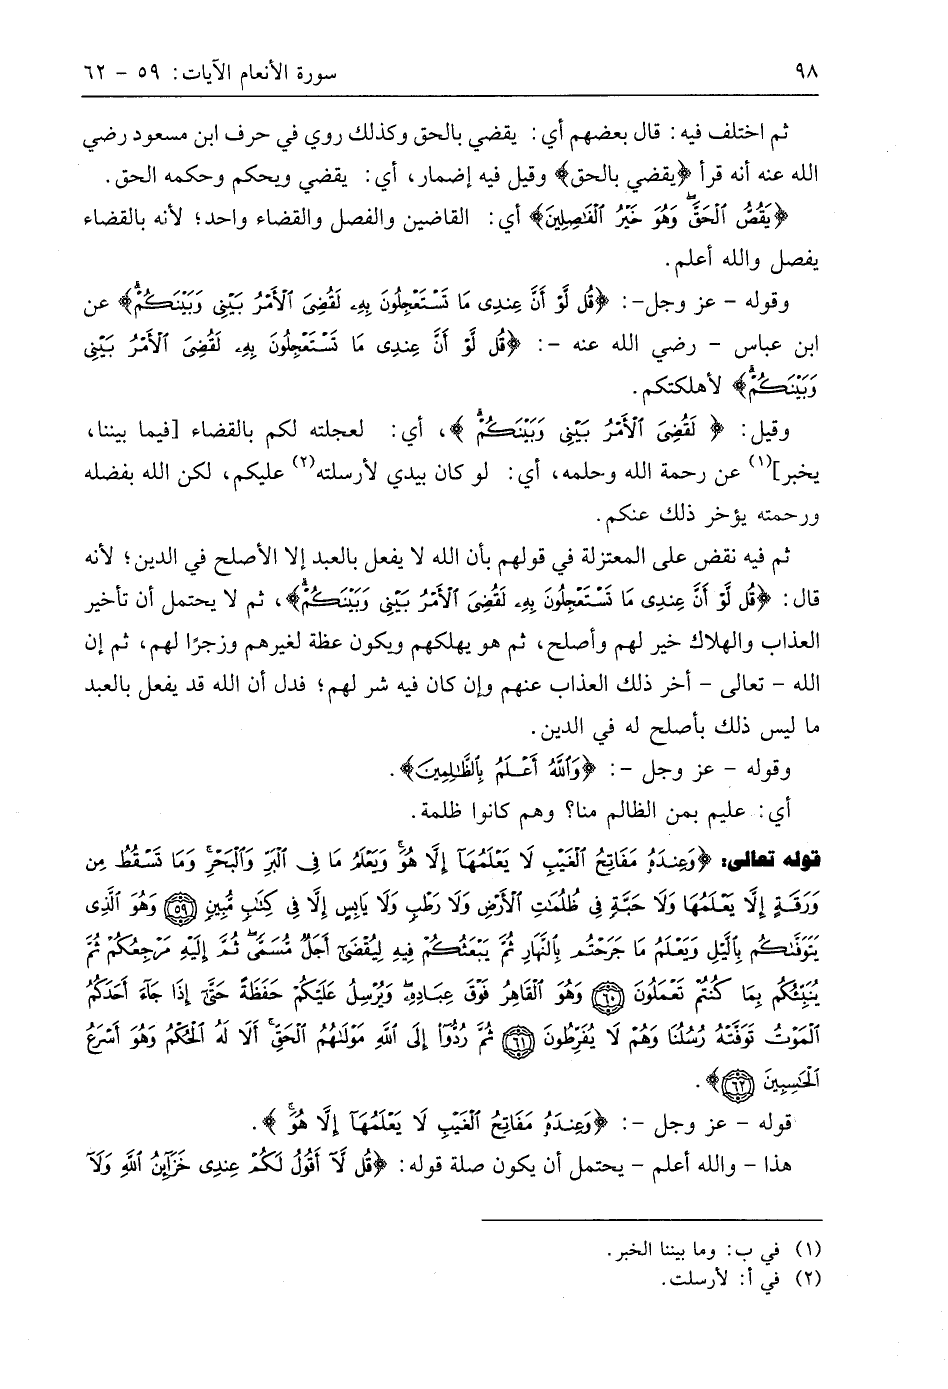 ٩٨ سورة الأنعام الآيات: ٥٩ - ٦٢
ثم اختلف فيه: قال بعضهم أي: يقضي بالحق وكذلك روي في حرف ابن مسعود رضي
الله عنه أنه قرأ ﴿يقضي بالحق﴾ وقيل فيه إضمار، أي: يقضي ويحكم وحكمه الحق.
﴿يَقُصُّ ٱلْحَقَّۖ وَهُوَ خَيْرُ ٱلْفَٰصِلِينَ﴾ أي: القاضين والفصل والقضاء واحد؛ لأنه بالقضاء
يفصل والله أعلم.
وقوله - عز وجل-: ﴿قُل لَّوْ أَنَّ عِندِى مَا تَسْتَعْجِلُونَ بِهِۦ لَقُضِىَ ٱلْأَمْرُ بَيْنِى وَبَيْنَكُمْۗ﴾ عن
ابن عباس - رضي الله عنه -: ﴿قُل لَّوْ أَنَّ عِندِى مَا تَسْتَعْجِلُونَ بِهِۦ لَقُضِىَ ٱلْأَمْرُ بَيْنِى
وَبَيْنَكُمْۗ﴾ لأهلكتكم.
وقيل: ﴿ لَقُضِىَ ٱلْأَمْرُ بَيْنِى وَبَيْنَكُمْۗ ﴾، أي: لعجلته لكم بالقضاء [فيما بيننا،
يخبر](١) عن رحمة الله وحلمه، أي: لو كان بيدي لأرسلته(٢) عليكم، لكن الله بفضله
ورحمته يؤخر ذلك عنكم.
ثم فيه نقض على المعتزلة في قولهم بأن الله لا يفعل بالعبد إلا الأصلح في الدين؛ لأنه
قال: ﴿قُل لَّوْ أَنَّ عِندِى مَا تَسْتَعْجِلُونَ بِهِۦ لَقُضِىَ ٱلْأَمْرُ بَيْنِى وَبَيْنَكُمْۗ﴾، ثم لا يحتمل أن تأخير
العذاب والهلاك خير لهم وأصلح، ثم هو يهلكهم ويكون عظة لغيرهم وزجرًا لهم، ثم إن
الله - تعالى - أخر ذلك العذاب عنهم وإن كان فيه شر لهم؛ فدل أن الله قد يفعل بالعبد
ما ليس ذلك بأصلح له في الدين.
وقوله - عز وجل -: ﴿وَٱللَّهُ أَعْلَمُ بِٱلظَّٰلِمِينَ﴾.
أي: عليم بمن الظالم منا؟ وهم كانوا ظلمة.
قوله تعالى: ﴿وَعِندَهُۥ مَفَاتِحُ ٱلْغَيْبِ لَا يَعْلَمُهَآ إِلَّا هُوَۚ وَيَعْلَمُ مَا فِى ٱلْبَرِّ وَٱلْبَحْرِۚ وَمَا تَسْقُطُ مِن
وَرَقَةٍ إِلَّا يَعْلَمُهَا وَلَا حَبَّةٍ فِى ظُلُمَٰتِ ٱلْأَرْضِ وَلَا رَطْبٍ وَلَا يَابِسٍ إِلَّا فِى كِتَٰبٍ مُّبِينٍ ٥٩ وَهُوَ ٱلَّذِى
يَتَوَفَّىٰكُم بِٱلَّيْلِ وَيَعْلَمُ مَا جَرَحْتُم بِٱلنَّهَارِ ثُمَّ يَبْعَثُكُمْ فِيهِ لِيُقْضَىٰٓ أَجَلٌ مُّسَمًّىۖ ثُمَّ إِلَيْهِ مَرْجِعُكُمْ ثُمَّ
يُنَبِّئُكُم بِمَا كُنتُمْ تَعْمَلُونَ ٦٠ وَهُوَ ٱلْقَاهِرُ فَوْقَ عِبَادِهِۦۖ وَيُرْسِلُ عَلَيْكُمْ حَفَظَةً حَتَّىٰٓ إِذَا جَآءَ أَحَدَكُمُ
ٱلْمَوْتُ تَوَفَّتْهُ رُسُلُنَا وَهُمْ لَا يُفَرِّطُونَ ٦١ ثُمَّ رُدُّوٓا۟ إِلَى ٱللَّهِ مَوْلَىٰهُمُ ٱلْحَقِّۚ أَلَا لَهُ ٱلْحُكْمُ وَهُوَ أَسْرَعُ
ٱلْحَٰسِبِينَ ٦٢﴾.
قوله - عز وجل -: ﴿وَعِندَهُۥ مَفَاتِحُ ٱلْغَيْبِ لَا يَعْلَمُهَآ إِلَّا هُوَۚ ﴾.
هذا - والله أعلم - يحتمل أن يكون صلة قوله: ﴿قُل لَّآ أَقُولُ لَكُمْ عِندِى خَزَآئِنُ ٱللَّهِ وَلَآ
(١) في ب: وما بيننا الخبر.
(٢) في أ: لأرسلت.